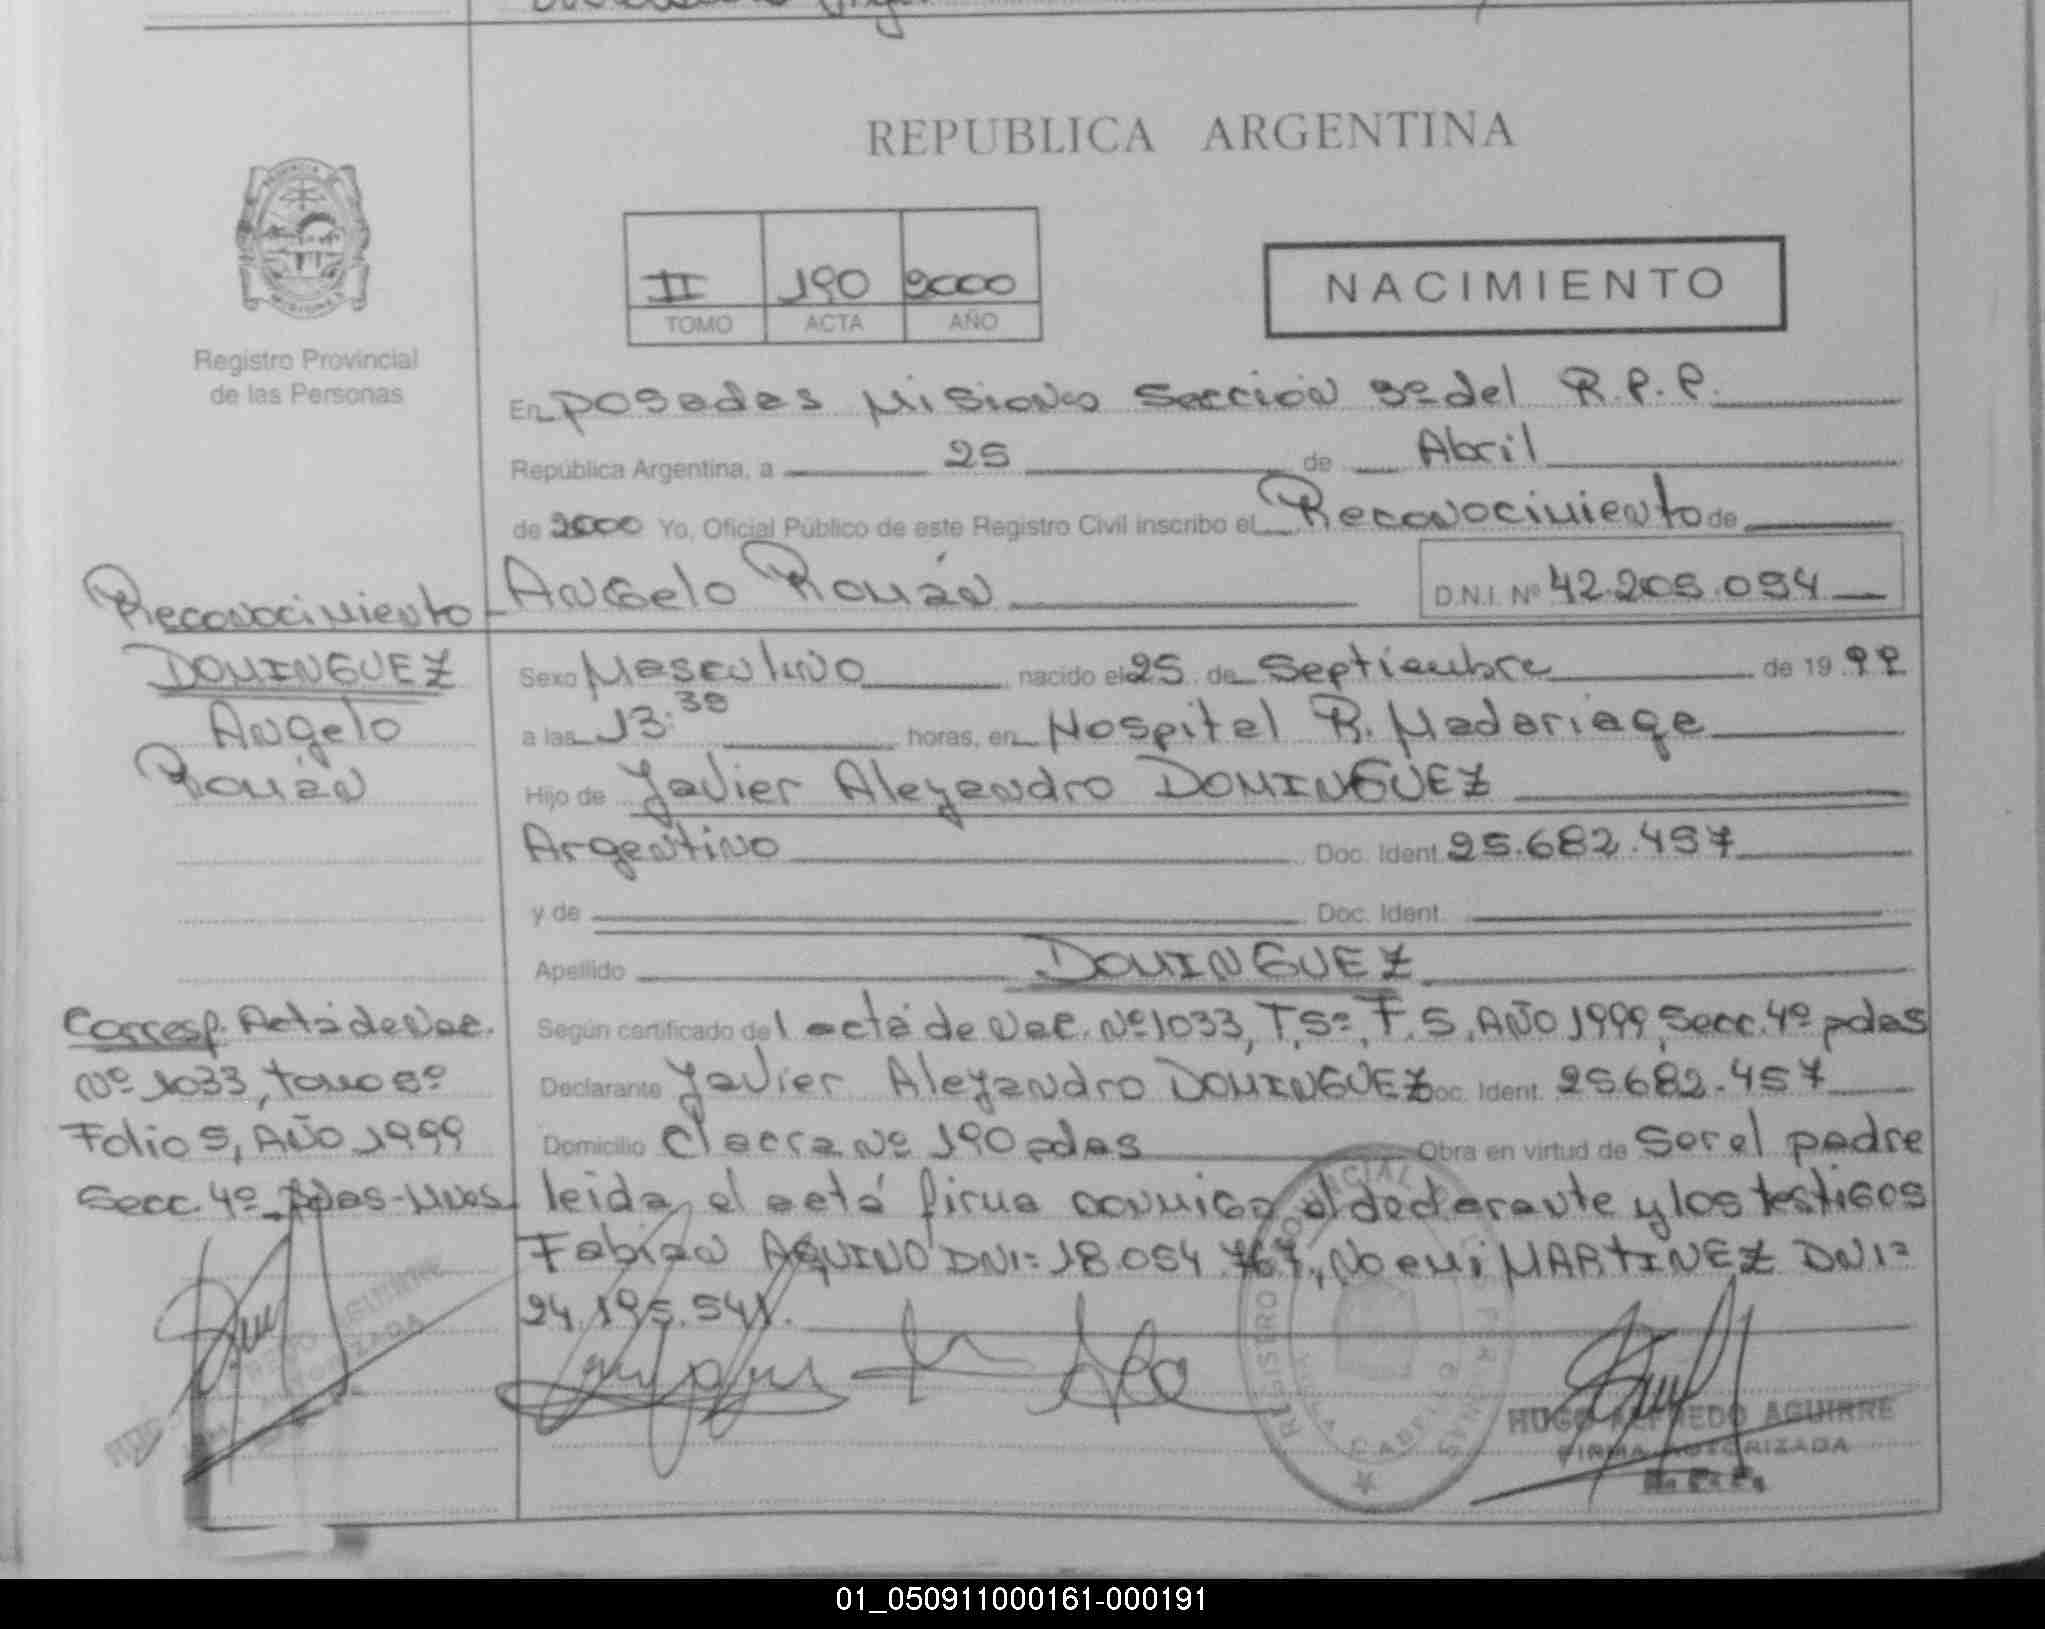 REPUBLICA ARGENTINA
II 190 2000
TOMO ACTA AÑO
NACIMIENTO
Registro Provincial
de las Personas
En posadas Misiones Sección 9º del R.P.P.
República Argentina, a 25 de Abril
de 2000 Yo, Oficial Público de este Registro Civil inscribo el Reconocimiento de
Angelo Román D.N.I. Nº 42.205.094
Reconocimiento
DOMINGUEZ
Angelo
Román
Sexo Masculino nacido el 25 de Septiembre de 19 99
a las 13:35 horas, en Hospital R. Madariaga
Hijo de Javier Alejandro DOMINGUEZ
Argentino Doc. Ident. 25.682.457
y de Doc. Ident.
Apellido DOMINGUEZ
Según certificado del acta de Nac. Nº 1033, T, 5º, F. 5, AÑO 1999, Secc. 4º pdas
Declarante Javier Alejandro DOMINGUEZ Doc. Ident. 25.682.457
Domicilio Chacra Nº 190 pdas Obra en virtud de Ser el padre
leida el acta firma conmigo el declarante y los testigos
Fabian AQUINO DNI= 18.054.767, Noemi MARTINEZ DNI=
24.195.541.
Corresp. Acta de Nac.
Nº 1033, tomo 5º
Folio 5, AÑO 1999
Secc. 4º pdas-Mnes
REGISTRO PROVINCIAL
HUGO ALFREDO AGUIRRE
FIRMA AUTORIZADA
01_050911000161-000191